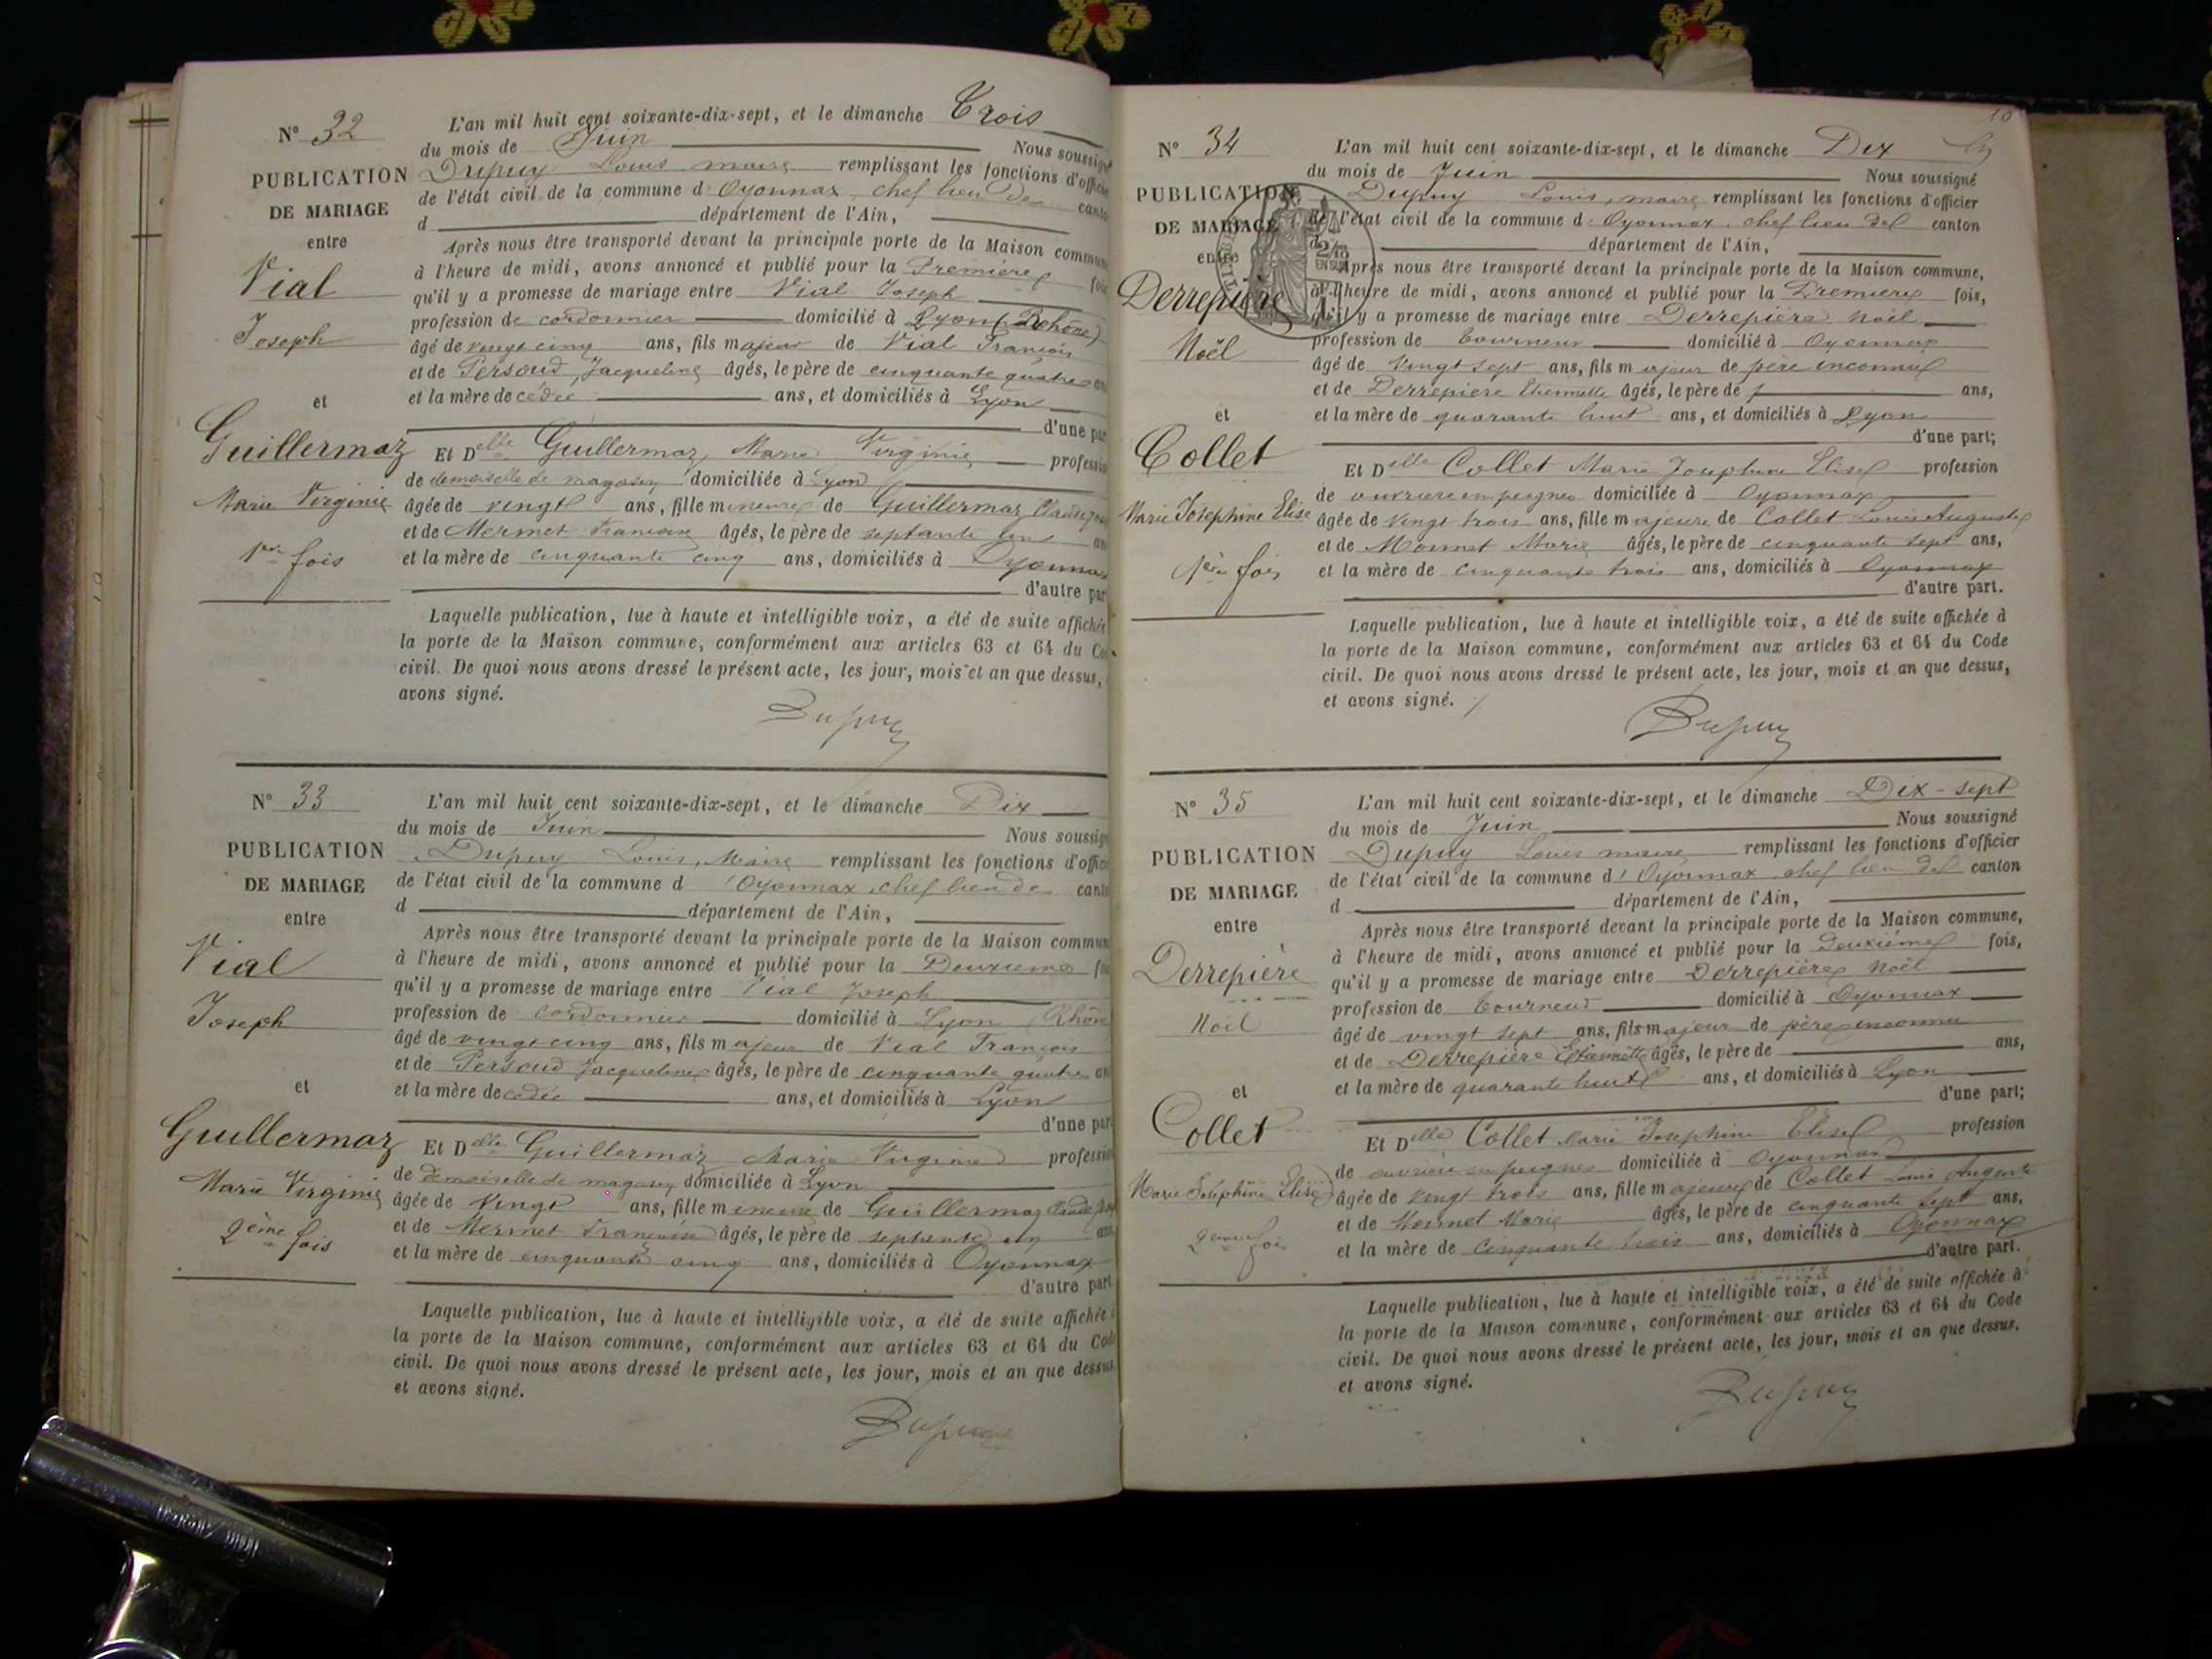 N° 32
PUBLICATION
DE MARIAGE
entre
Vial
Joseph
et
Guillermaz
Marie Virginie
1ère fois
L'an mil huit cent soixante-dix-sept, et le dimanche Trois
du mois de Juin Nous soussigné
Dupuy Louis maire remplissant les fonctions d'officier
de l'état civil de la commune d'Oyonnax chef lieu de canton
d département de l'Ain,
Après nous être transporté devant la principale porte de la Maison commune
à l'heure de midi, avons annoncé et publié pour la Première fois
qu'il y a promesse de mariage entre Vial Joseph
profession de cordonnier domicilié à Lyon (Rhône)
âgé de vingt cinq ans, fils majeur de Vial François
et de Persoud Jacqueline âgés, le père de cinquante quatre ans
et la mère de cédée ans, et domiciliés à Lyon
d'une part
Et Delle Guillermaz Marie Virginie profession
de demoiselle de magasin domiciliée à Lyon
âgée de vingt ans, fille mineure de Guillermaz
et de Mermet Françoise âgés, le père de septante un ans
et la mère de cinquante cinq ans, domiciliés à Oyonnax
d'autre part
Laquelle publication, lue à haute et intelligible voix, a été de suite affichée
la porte de la Maison commune, conformément aux articles 63 et 64 du Code
civil. De quoi nous avons dressé le présent acte, les jour, mois et an que dessus,
avons signé.
Dupuy
N° 33
PUBLICATION
DE MARIAGE
entre
Vial
Joseph
et
Guillermaz
Marie Virginie
2ème fois
L'an mil huit cent soixante-dix-sept, et le dimanche Dix
du mois de Juin Nous soussigné
Dupuy Louis, Maire remplissant les fonctions d'officier
de l'état civil de la commune d'Oyonnax chef lieu de canton
d département de l'Ain,
Après nous être transporté devant la principale porte de la Maison commune
à l'heure de midi, avons annoncé et publié pour la Deuxieme fois
qu'il y a promesse de mariage entre Vial Joseph
profession de cordonnier domicilié à Lyon Rhône
âgé de vingt cinq ans, fils majeur de Vial François
et de Persoud Jacqueline âgés, le père de cinquante quatre ans
et la mère decédée ans, et domiciliés à Lyon
d'une part
Et Delle Guillermaz Marie Virginie profession
de Demoiselle de magasin domiciliée à Lyon
âgée de Vingt ans, fille mineure de Guillermaz
et de Mermet Françoise âgés, le père de septante un ans
et la mère de cinquante cinq ans, domiciliés à Oyonnax
d'autre part
Laquelle publication, lue à haute et intelligible voix, a été de suite affichée
la porte de la Maison commune, conformément aux articles 63 et 64 du Code
civil. De quoi nous avons dressé le présent acte, les jour, mois et an que dessus
et avons signé.
Dupuy
10
N° 34
PUBLICATION
DE MARIAGE
entre
Derrepière
Noël
et
Collet
Marie Josephine Elise
1ère fois
L'an mil huit cent soixante-dix-sept, et le dimanche Dix
du mois de Juin Nous soussigné
Dupuy Louis, maire remplissant les fonctions d'officier
de l'état civil de la commune d'Oyonnax chef lieu de canton
d département de l'Ain,
Après nous être transporté devant la principale porte de la Maison commune,
à l'heure de midi, avons annoncé et publié pour la Première fois,
qu'il y a promesse de mariage entre Derrepière Noël
profession de tourneur domicilié à Oyonnax
âgé de Vingt sept ans, fils majeur de père inconnu
et de Derrepiere Etiennette âgés, le père de ans,
et la mère de quarante huit ans, et domiciliés à Lyon
d'une part;
Et Delle Collet Marie Josephine Elise profession
de ouvriere en peignes domiciliée à Oyonnax
âgée de Vingt trois ans, fille majeure de Collet Louis Auguste
et de Monnet Marie âgés, le père de cinquante sept ans,
et la mère de cinquante trois ans, domiciliés à Oyonnax
d'autre part.
Laquelle publication, lue à haute et intelligible voix, a été de suite affichée à
la porte de la Maison commune, conformément aux articles 63 et 64 du Code
civil. De quoi nous avons dressé le présent acte, les jour, mois et an que dessus,
et avons signé.
Dupuy
N° 35
PUBLICATION
DE MARIAGE
entre
Derrepière
Noël
et
Collet
Marie Joséphine Elise
2ème fois
L'an mil huit cent soixante-dix-sept, et le dimanche Dix-sept
du mois de Juin Nous soussigné
Dupuy Louis maire remplissant les fonctions d'officier
de l'état civil de la commune d'Oyonnax chef lieu de canton
d département de l'Ain,
Après nous être transporté devant la principale porte de la Maison commune,
à l'heure de midi, avons annoncé et publié pour la Deuxième fois,
qu'il y a promesse de mariage entre Derrepière Noël
profession de tourneur domicilié à Oyonnax
âgé de vingt sept ans, fils majeur de père inconnu
et de Derrepière Etiennette âgés, le père de ans,
et la mère de quarante huit ans, et domiciliés à Lyon
d'une part;
Et Delle Collet Marie Josephine Elise profession
de ouvrière en peignes domiciliée à Oyonnax
âgée de vingt trois ans, fille majeure de Collet Louis Auguste
et de Monnet Marie âgés, le père de cinquante sept ans,
et la mère de cinquante trois ans, domiciliés à Oyonnax
d'autre part.
Laquelle publication, lue à haute et intelligible voix, a été de suite affichée à
la porte de la Maison commune, conformément aux articles 63 et 64 du Code
civil. De quoi nous avons dressé le présent acte, les jour, mois et an que dessus.
et avons signé.
Dupuy